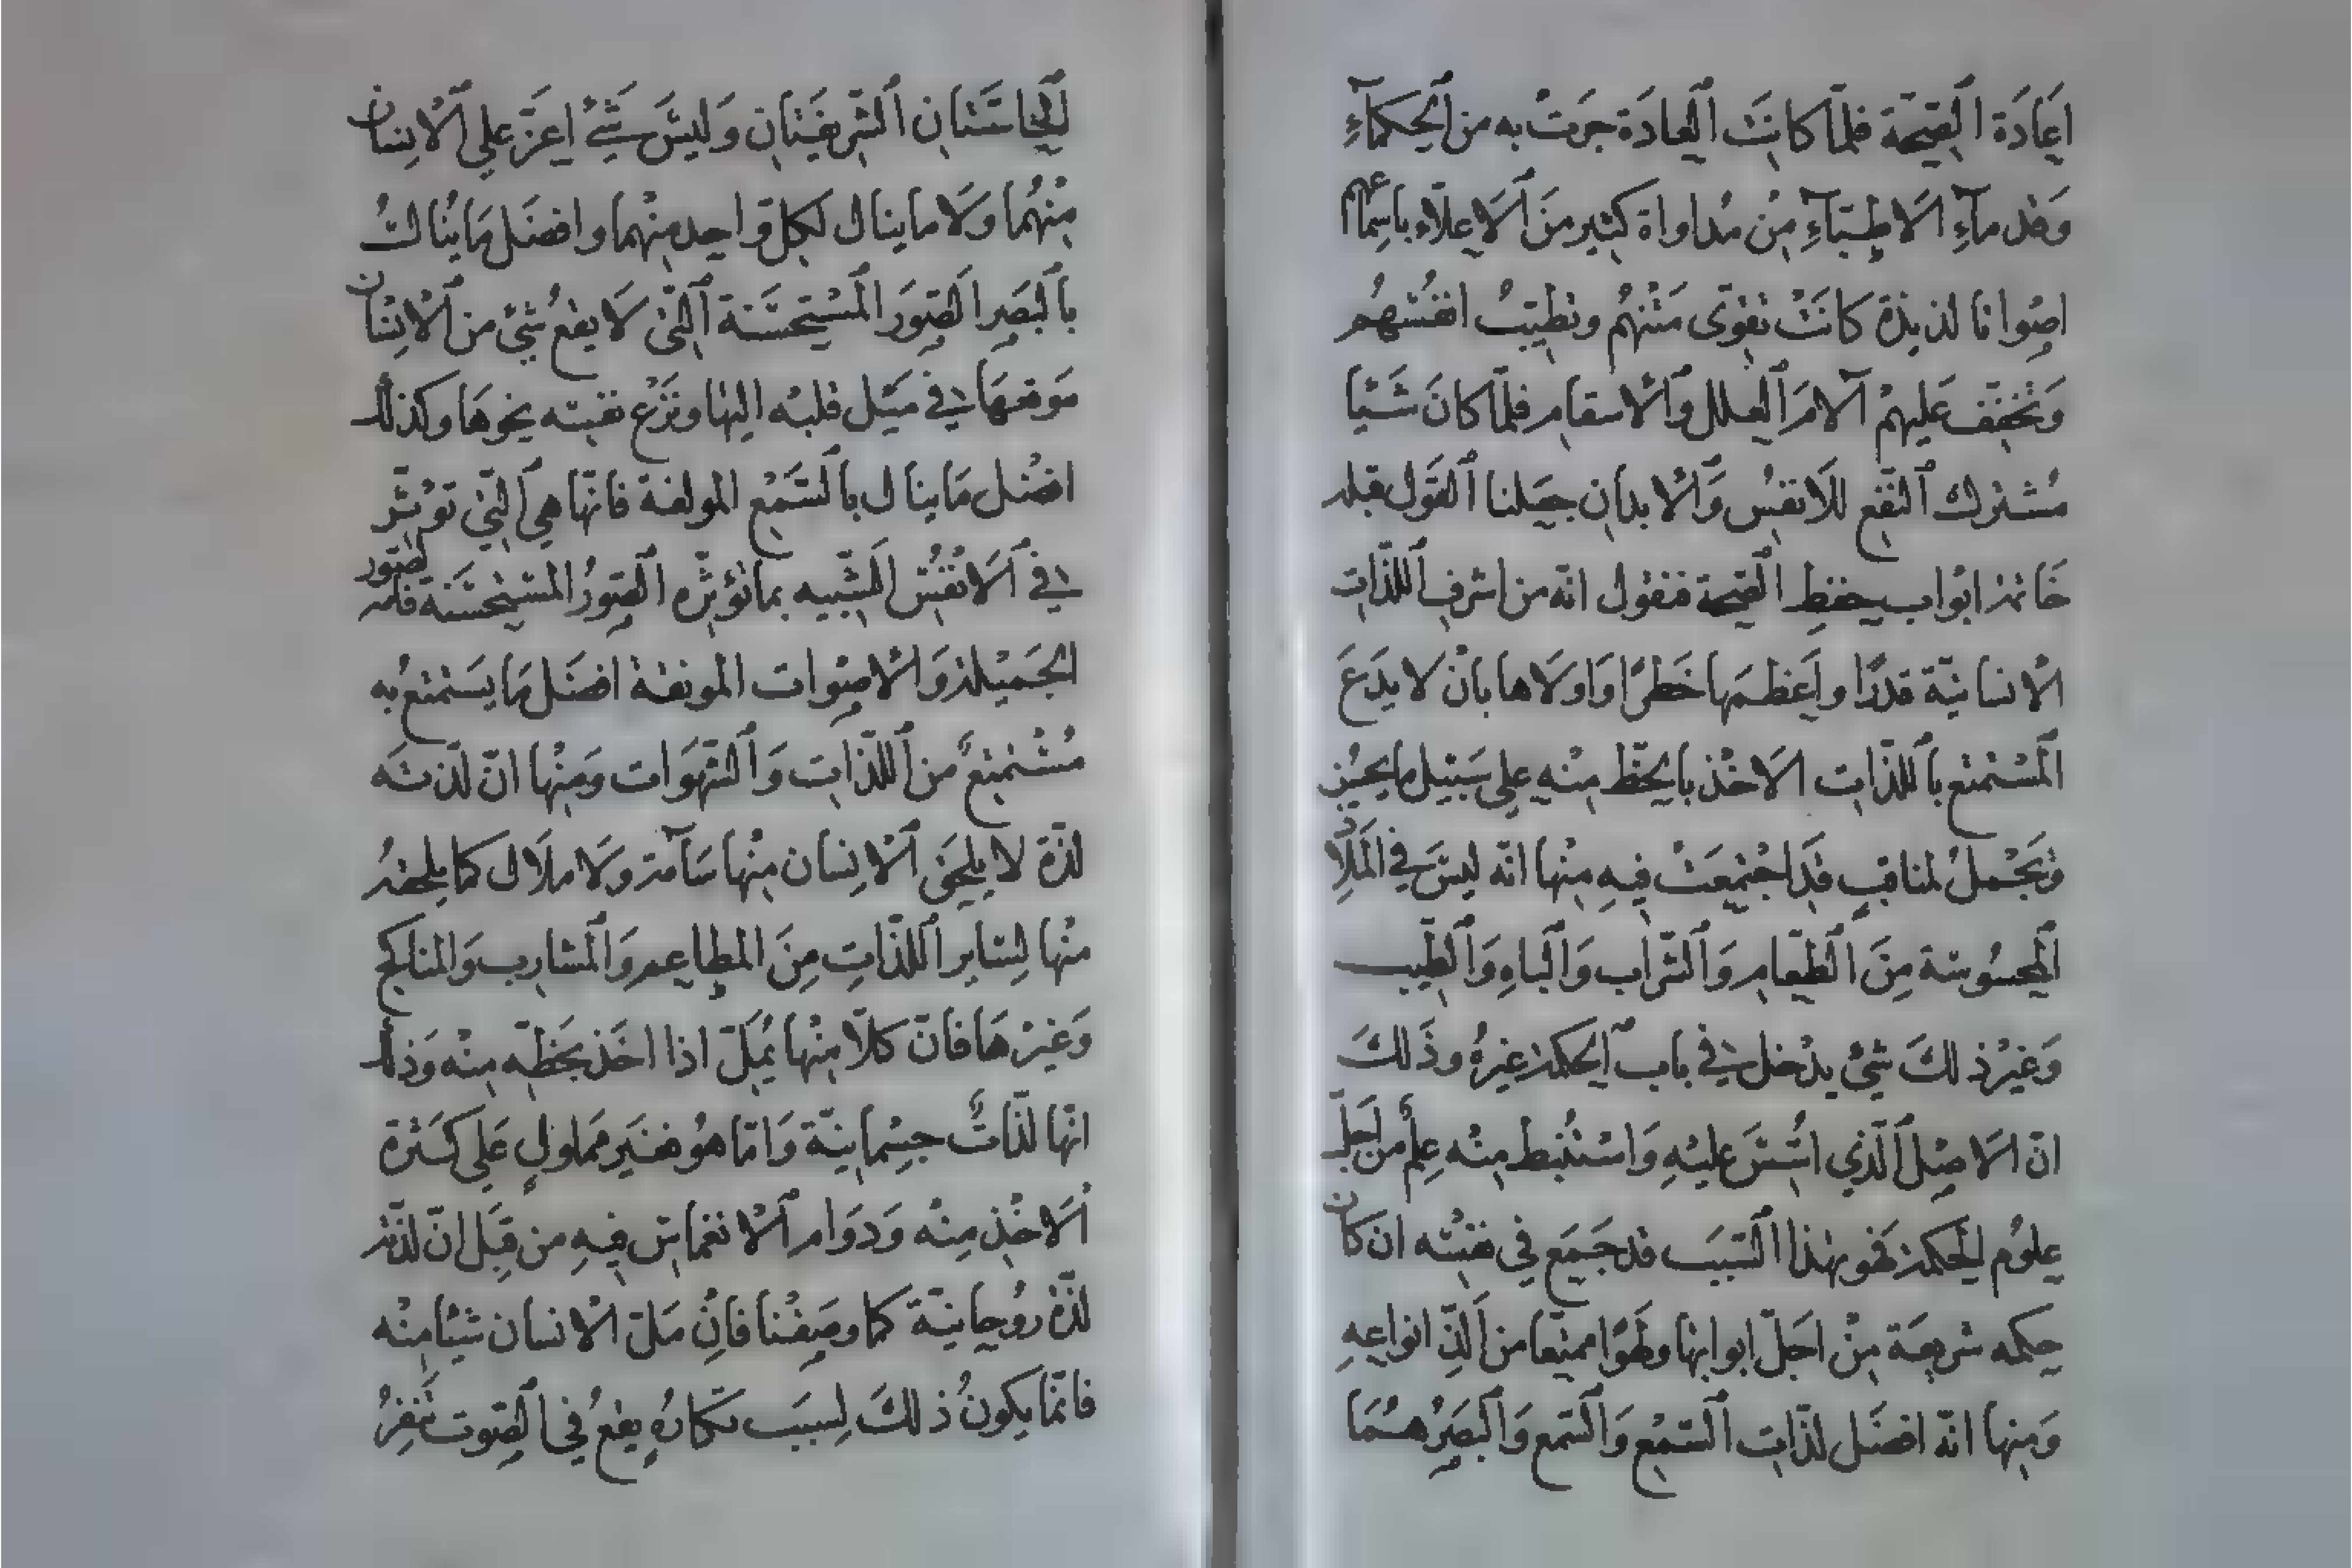 اِعَادَة الصِّحّة فلمّا كانَت العَادَة جرَتْ به من الحكمآءِ
وَقدمآءِ الاطِبّآءِ مِنْ مُداواة كثير منَ الاعِلّاء باسِماعهم
اصْواتا لذيذة كانَتْ تقوّى مَتْنهُم وتطيّبُ انفُسَهُم
وَتخفّف عَليهمْ آلامَ العِلل وَالاسقام فلمّا كانَ شَيْئا
مُشترك النّفع للانفُس وَالابدان جعَلنا القول فيه
خَاتمة ابْواب حفظِ الصّحة فنقول انّه من اشرفِ اللذّات
الانسَانيّة قدرًا واَعظمهَا خَطرًا وَاولاها بانْ لا يدَعَ
المسْتمتع باللذّات الاخْذ بالحَظّ منْه على سَبيل ما يجب
لمناقبٍ قدَ اجْتمعَتْ فيهِ مِنْها انّه ليسَ في الملاذّ
المحسُوسَة مِنَ الطّعام وَالشّراب وَالبَاهِ وَالطّيب
وَغيْر ذلكَ شيْ يدْخل في باب الحكمة غيرهُ وذَلكَ
انّ الاصْل الّذي اسُّسَ عليْهِ وَاسْتُنبط منْه عِلمٌ من اَجَلّ
علوُم الحكمة فهو بهٰذا السَّبَب قد جَمَع في نفسه ان كان
حكمه شريعَة مِنْ اَجَلّ ابوابها ولهوًا ممتعًا من اَلذّ انواعِهِ
وَمِنها انّه افضَل لذّات السّمْع وَالسّمع وَالبَصَرُ همُا
الحَاسّتَان الشّريفَتان وَليسَ شَيْءٌ اعزّ على الانسان
مِنْهُما وَلا ما ينال لكلّ وَاحدٍ منْهما وافضَل مَا يُنالُ
بالبَصَر الصّوَر المسْتحسَنة الّتى لا يقعُ شيْ من الانسان
مَوقعَهَا في مَيْل قلبه اليْها ونَزْع نفسه نحوهَا وكذلك
افضْل مَا ينال بالسَّمْع المولفة فانّها هي الّتي توثّر
في الانفُس الشّبيه بما تؤثّره الصّورُ المسْتحسَنة فالصّور
الجَميْلة وَالاصْوات المونقة افضَل مَا يسَتمتعُ به
مُسْتمتعٌ من اللذّات وَالشّهوَات وَمنْها انّ لذّته
لذّة لا يلحَق الانسان منْها سَآمة وَلا ملَال كما يلحقهُ
منْها لِسَاير اللذّاتِ مِنَ المطاعم وَالمشارب وَالمناكح
وَغيْرهَا فانّ كلّا مِنْها يُمَلّ اذا اخَذ بحَظّه منْه وَذلك
انّها لذّاتٌ جسْمانيّة وَامّا هوُ فغَير مَملولٍ عَلى كَثرة
الاخْذِ مِنْه وَدوَام الانغماسِ فيهِ من قِبَل انّ لذّته
لذّة روُحانيّة كما وصَفْنا فانْ مَلّ الانسان شَيْئا مِنْه
فانّما يكونُ ذلكَ لِسبَب تكارُهٍ يقعُ في الصّوت تَنفِرُ